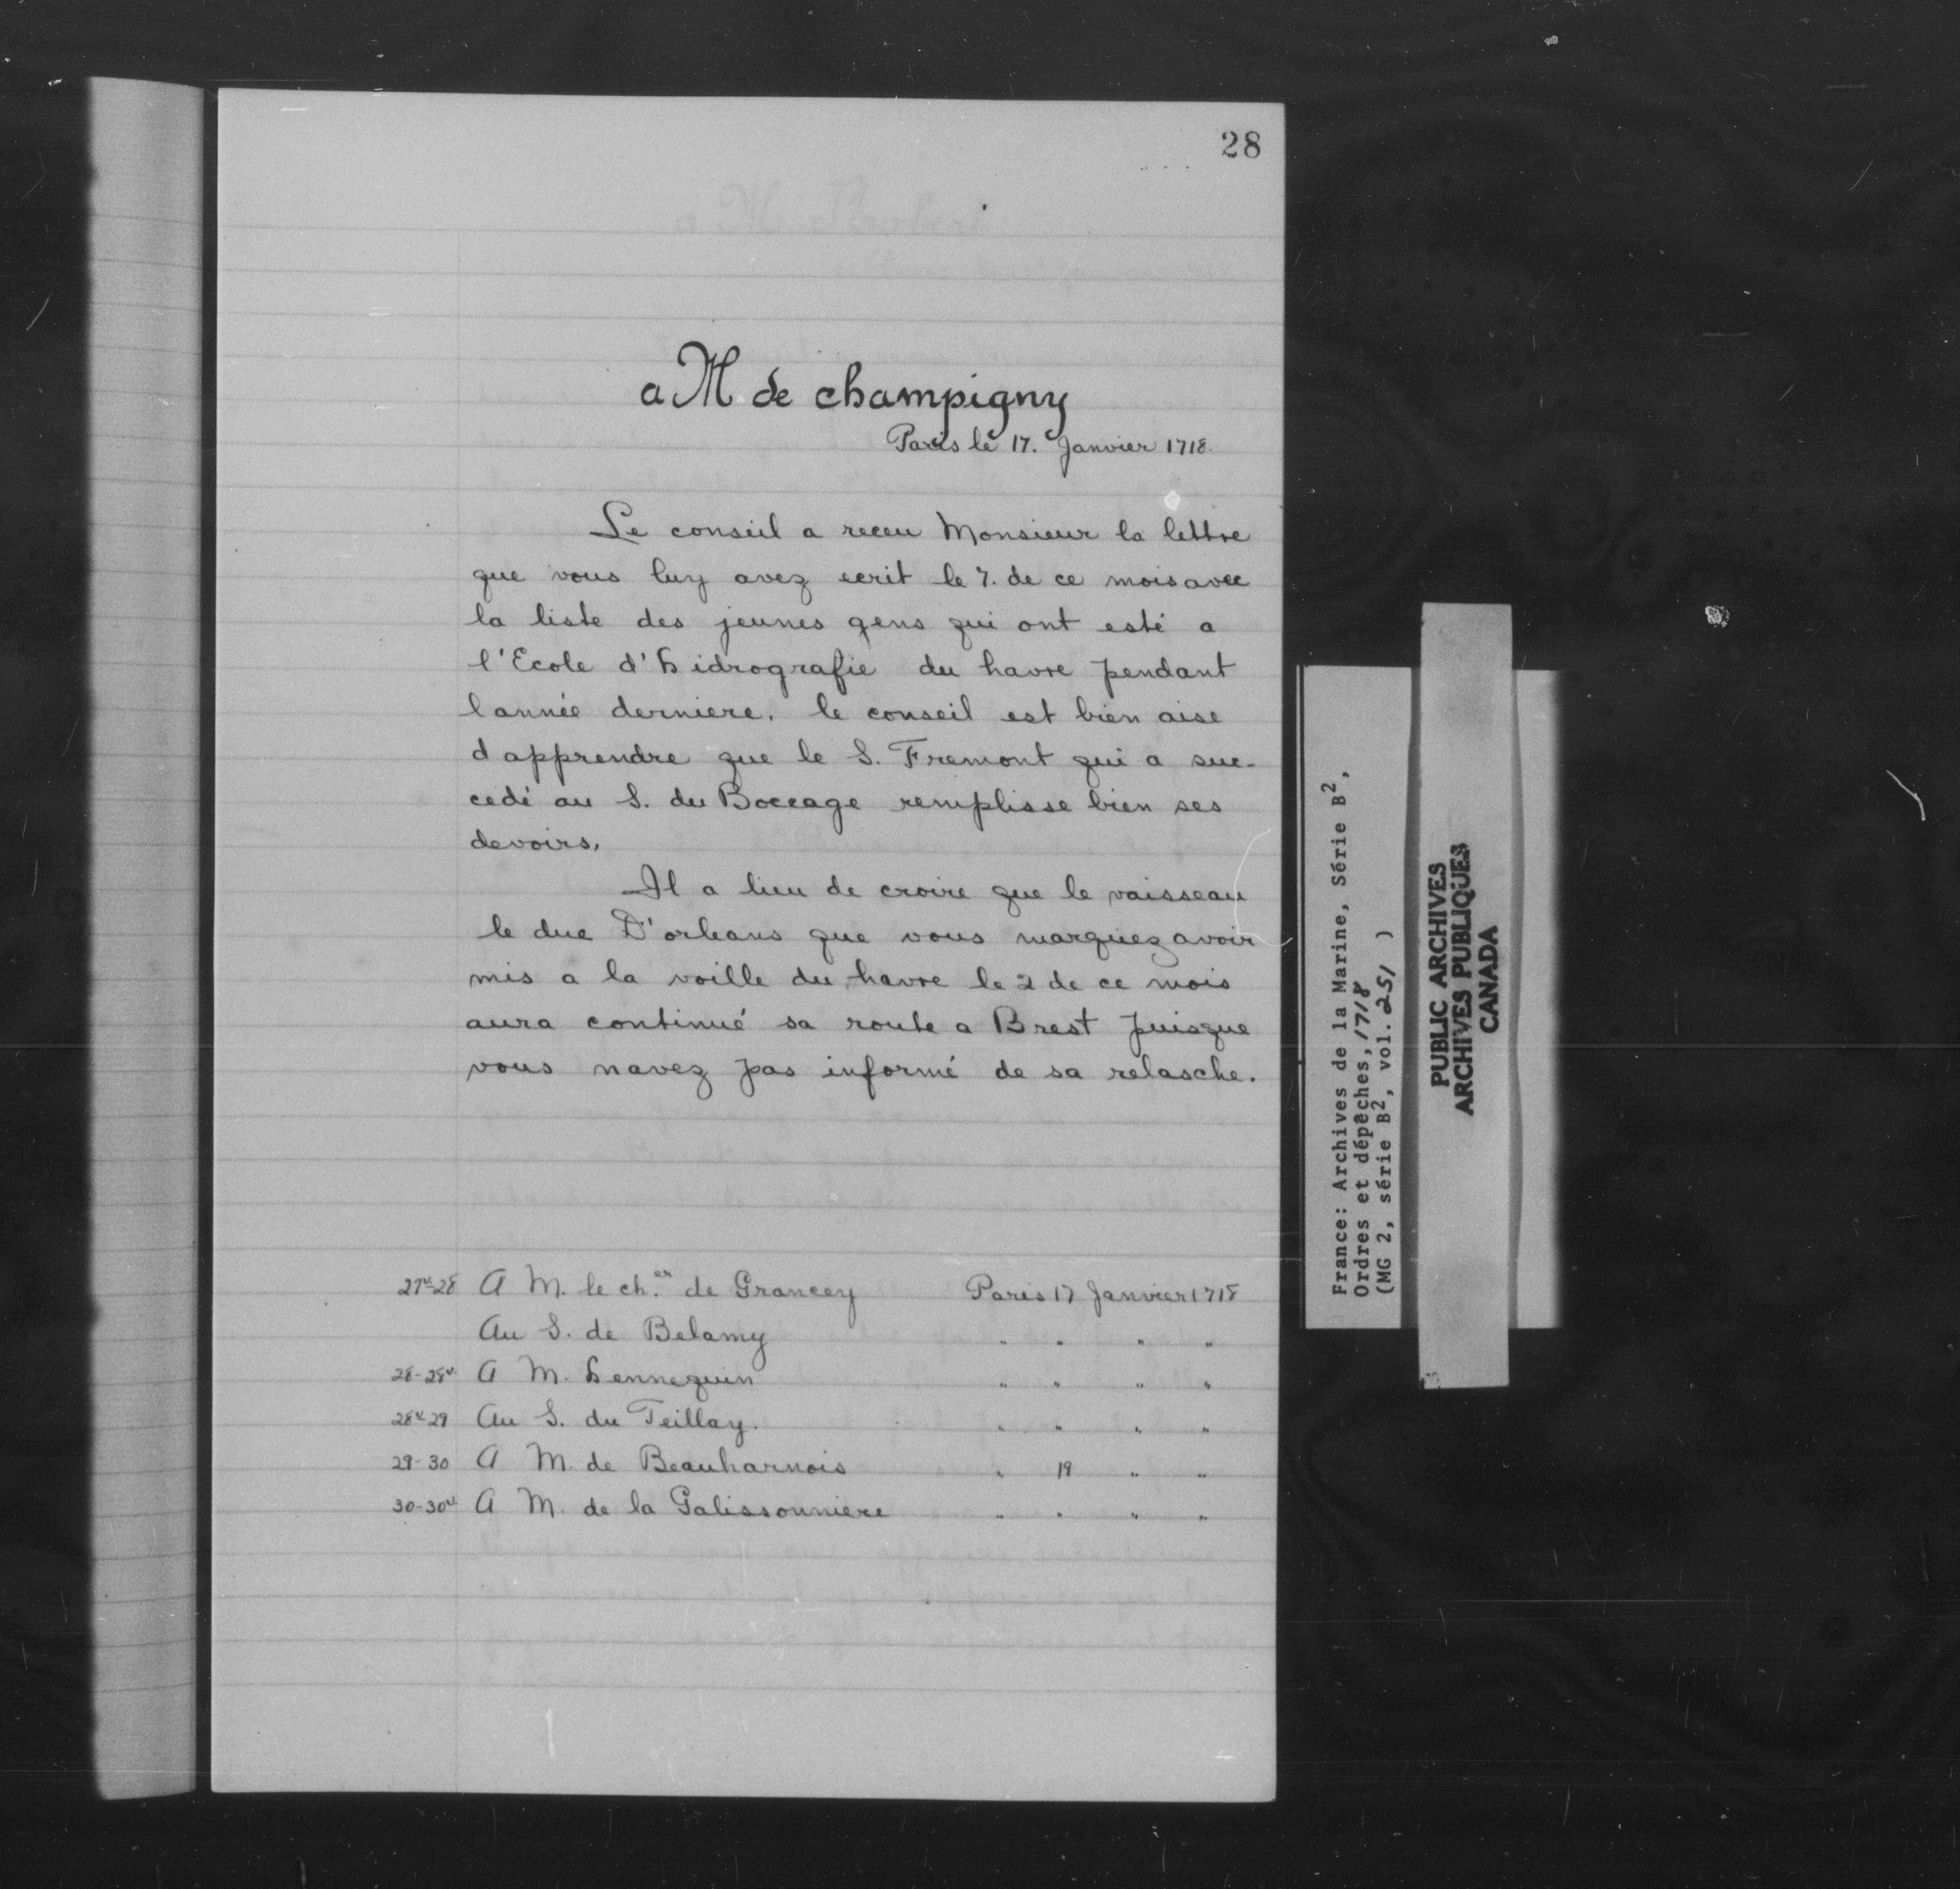 28
a M de champigny
Paris le 17. Janvier 1718.
Le conseil a receu Monsieur la lettre
que vous luy avez ecrit le 7. de ce mois avec
la liste des jeunes gens qui ont esté a
l'Ecole d'hidrografie du havre pendant
lannée derniere. le conseil est bien aise
dapprendre que le S. Fremont qui a suc-
cedé au S. du Boccage remplisse bien ses
devoirs.
Il a lieu de croire que le vaisseau
le duc D'orleans que vous marquez avoir
mis a la voille du havre le 2 de ce mois
aura continué sa route a Brest puisque
vous navez pas informé de sa relasche.
27v-28 A M. le ch.er de Grancey Paris 17 Janvier 1718
Au S. de Belamy " " " "
28-28v A M. hennequin " " " "
28v-29 Au S. du Teillay. " " " "
29-30 A M. de Beauharnois " 19 " "
30-30v A M. de la Galissonniere " " " "
France: Archives de la Marine, Série B2,
Ordres et dépêches, 1718
(MG 2, série B2, vol. 251 )
PUBLIC ARCHIVES
ARCHIVES PUBLIQUES
CANADA